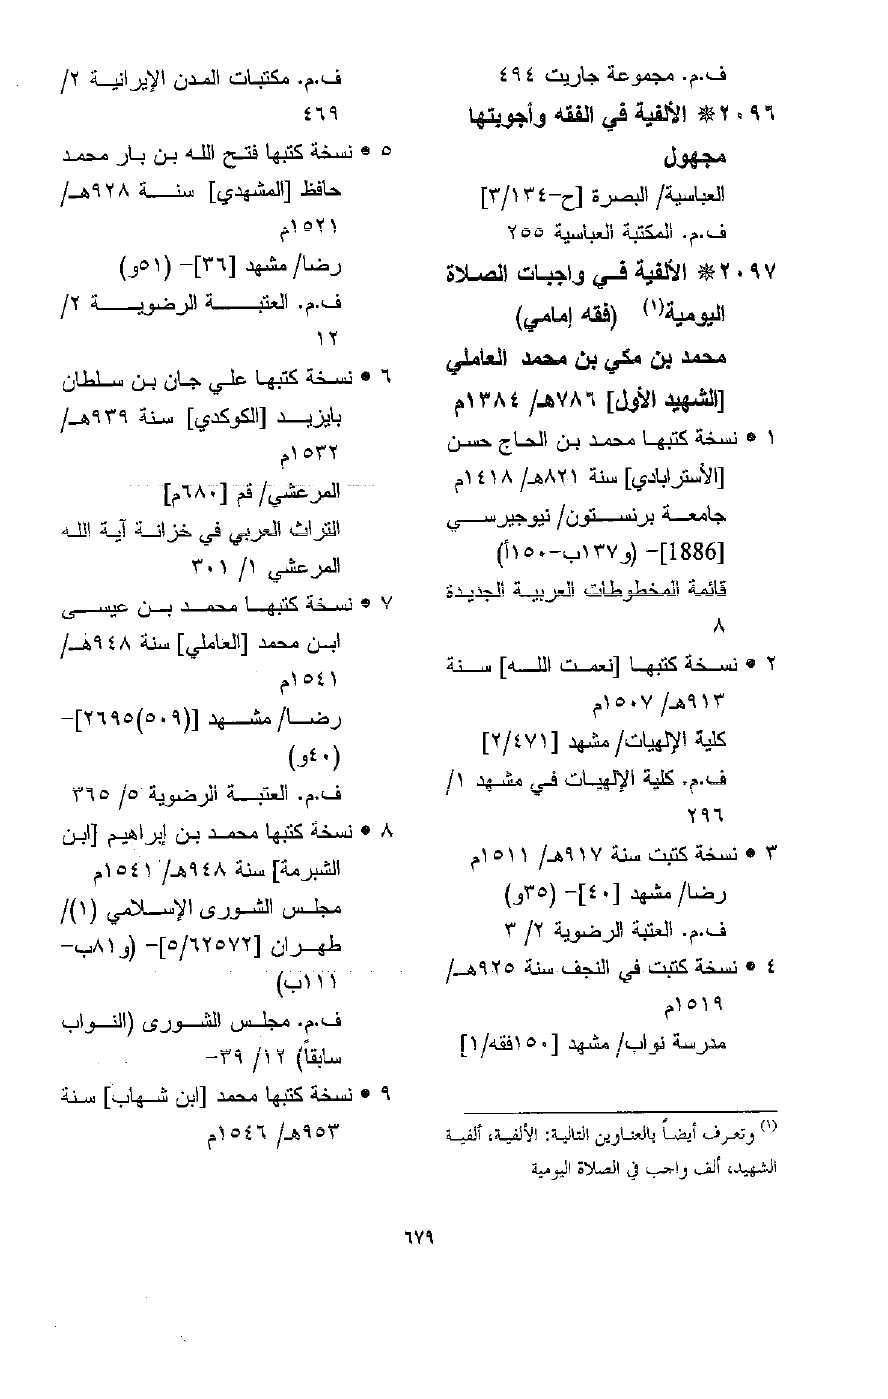 ف.م. مجموعة جاريت ٤٩٤
٢٠٩٦* الألفية في الفقه وأجوبتها
مجهول
العباسية/ البصرة [ح-٣/١٣٤]
ف.م. المكتبة العباسية ٢٥٥
٢٠٩٧* الألفية في واجبات الصلاة
اليومية(١) (فقه إمامي)
محمد بن مكي بن محمد العاملي
[الشهيد الأول] ٧٨٦هـ/ ١٣٨٤م
١ • نسخة كتبها محمد بن الحاج حسن
[الأسترابادي] سنة ٨٢١هـ/ ١٤١٨م
جامعة برنستون/ نيوجيرسي
[1886]- (و١٣٧ب-١٥٠أ)
قائمة المخطوطات العربية الجديدة
٨
٢ • نسخة كتبها [نعمت الله] سنة
٩١٣هـ/ ١٥٠٧م
كلية الإلهيات/ مشهد [٢/٤٧١]
ف.م. كلية الإلهيات في مشهد ١/
٢٩٦
٣ • نسخة كتبت سنة ٩١٧هـ/ ١٥١١م
رضا/ مشهد [٤٠]- (٣٥و)
ف.م. العتبة الرضوية ٢/ ٣
٤ • نسخة كتبت في النجف سنة ٩٢٥هـ/
١٥١٩م
مدرسة نواب/ مشهد [١٥٠فقه/١]
(١) وتعرف أيضاً بالعناوين التالية: الألفية، ألفية
الشهيد، ألف واجب في الصلاة اليومية
ف.م. مكتبات المدن الإيرانية ٢/
٤٦٩
٥ • نسخة كتبها فتح الله بن بار محمد
حافظ [المشهدي] سنة ٩٢٨هـ/
١٥٢١م
رضا/ مشهد [٣٦]- (٥١و)
ف.م. العتبة الرضوية ٢/
١٢
٦ • نسخة كتبها علي جان بن سلطان
بايزيد [الكوكدي] سنة ٩٣٩هـ/
١٥٣٢م
المرعشي/ قم [٦٨٠م]
التراث العربي في خزانة آية الله
المرعشي ١/ ٣٠١
٧ • نسخة كتبها محمد بن عيسى
ابن محمد [العاملي] سنة ٩٤٨هـ/
١٥٤١م
رضا/ مشهد [(٥٠٩)٢٦٩٥]-
(٤٠و)
ف.م. العتبة الرضوية ٥/ ٣٦٥
٨ • نسخة كتبها محمد بن إبراهيم [ابن
الشبرمة] سنة ٩٤٨هـ/ ١٥٤١م
مجلس الشورى الإسلامي (١)/
طهران [٥/٦٢٥٧٢]- (و٨١ب-
١١١ب)
ف.م. مجلس الشورى (النواب
سابقاً) ١٢/ ٣٩-
٩ • نسخة كتبها محمد [ابن شهاب] سنة
٩٥٣هـ/ ١٥٤٦م
٦٧٩